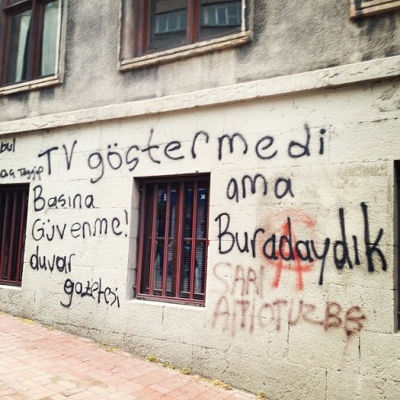 TV göstermedi
ama
Buradaydık
Basına
Güvenme!
duvar
gazetesi
SARI